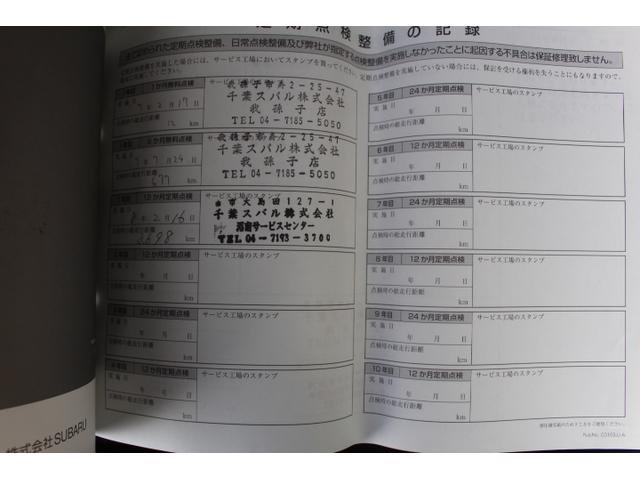 定期点検整備の記録
定期点検整備、日常点検整備及び弊社が指定する点検整備を実施しなかったことに起因する不具合は保証修理致しません。
サービス工場においてスタンプを
定期点検整備を実施していない場合には、保証を受ける権利を失うことにもなりますので、
1か月無料点検
我孫子市寿2-25-47
千葉スバル株式会社
我孫子店
TEL04-7185-5050
点検時の総走行距離
km
6か月無料点検
我孫子市寿2-25-47
千葉スバル株式会社
我孫子店
TEL04-7185-5050
点検時の総走行距離
677 km
12か月定期点検
サービス工場のスタンプ
市大島田127-1
千葉スバル株式会社
8年2月16日
TEL04-7193-3700
km
12か月定期点検
サービス工場のスタンプ
年 月 日
点検時の総走行距離
km
24か月定期点検
サービス工場のスタンプ
年 月 日
点検時の総走行距離
km
12か月定期点検
サービス工場のスタンプ
年 月 日
点検時の総走行距離
km
5年目 24か月定期点検
サービス工場のスタンプ
実施日
年 月 日
点検時の総走行距離
km
6年目 12か月定期点検
サービス工場のスタンプ
実施日
年 月 日
点検時の総走行距離
km
7年目 24か月定期点検
サービス工場のスタンプ
実施日
年 月 日
点検時の総走行距離
km
8年目 12か月定期点検
サービス工場のスタンプ
実施日
年 月 日
点検時の総走行距離
km
9年目 24か月定期点検
サービス工場のスタンプ
実施日
年 月 日
点検時の総走行距離
km
10年目 12か月定期点検
サービス工場のスタンプ
実施日
年 月 日
点検時の総走行距離
km
株式会社SUBARU